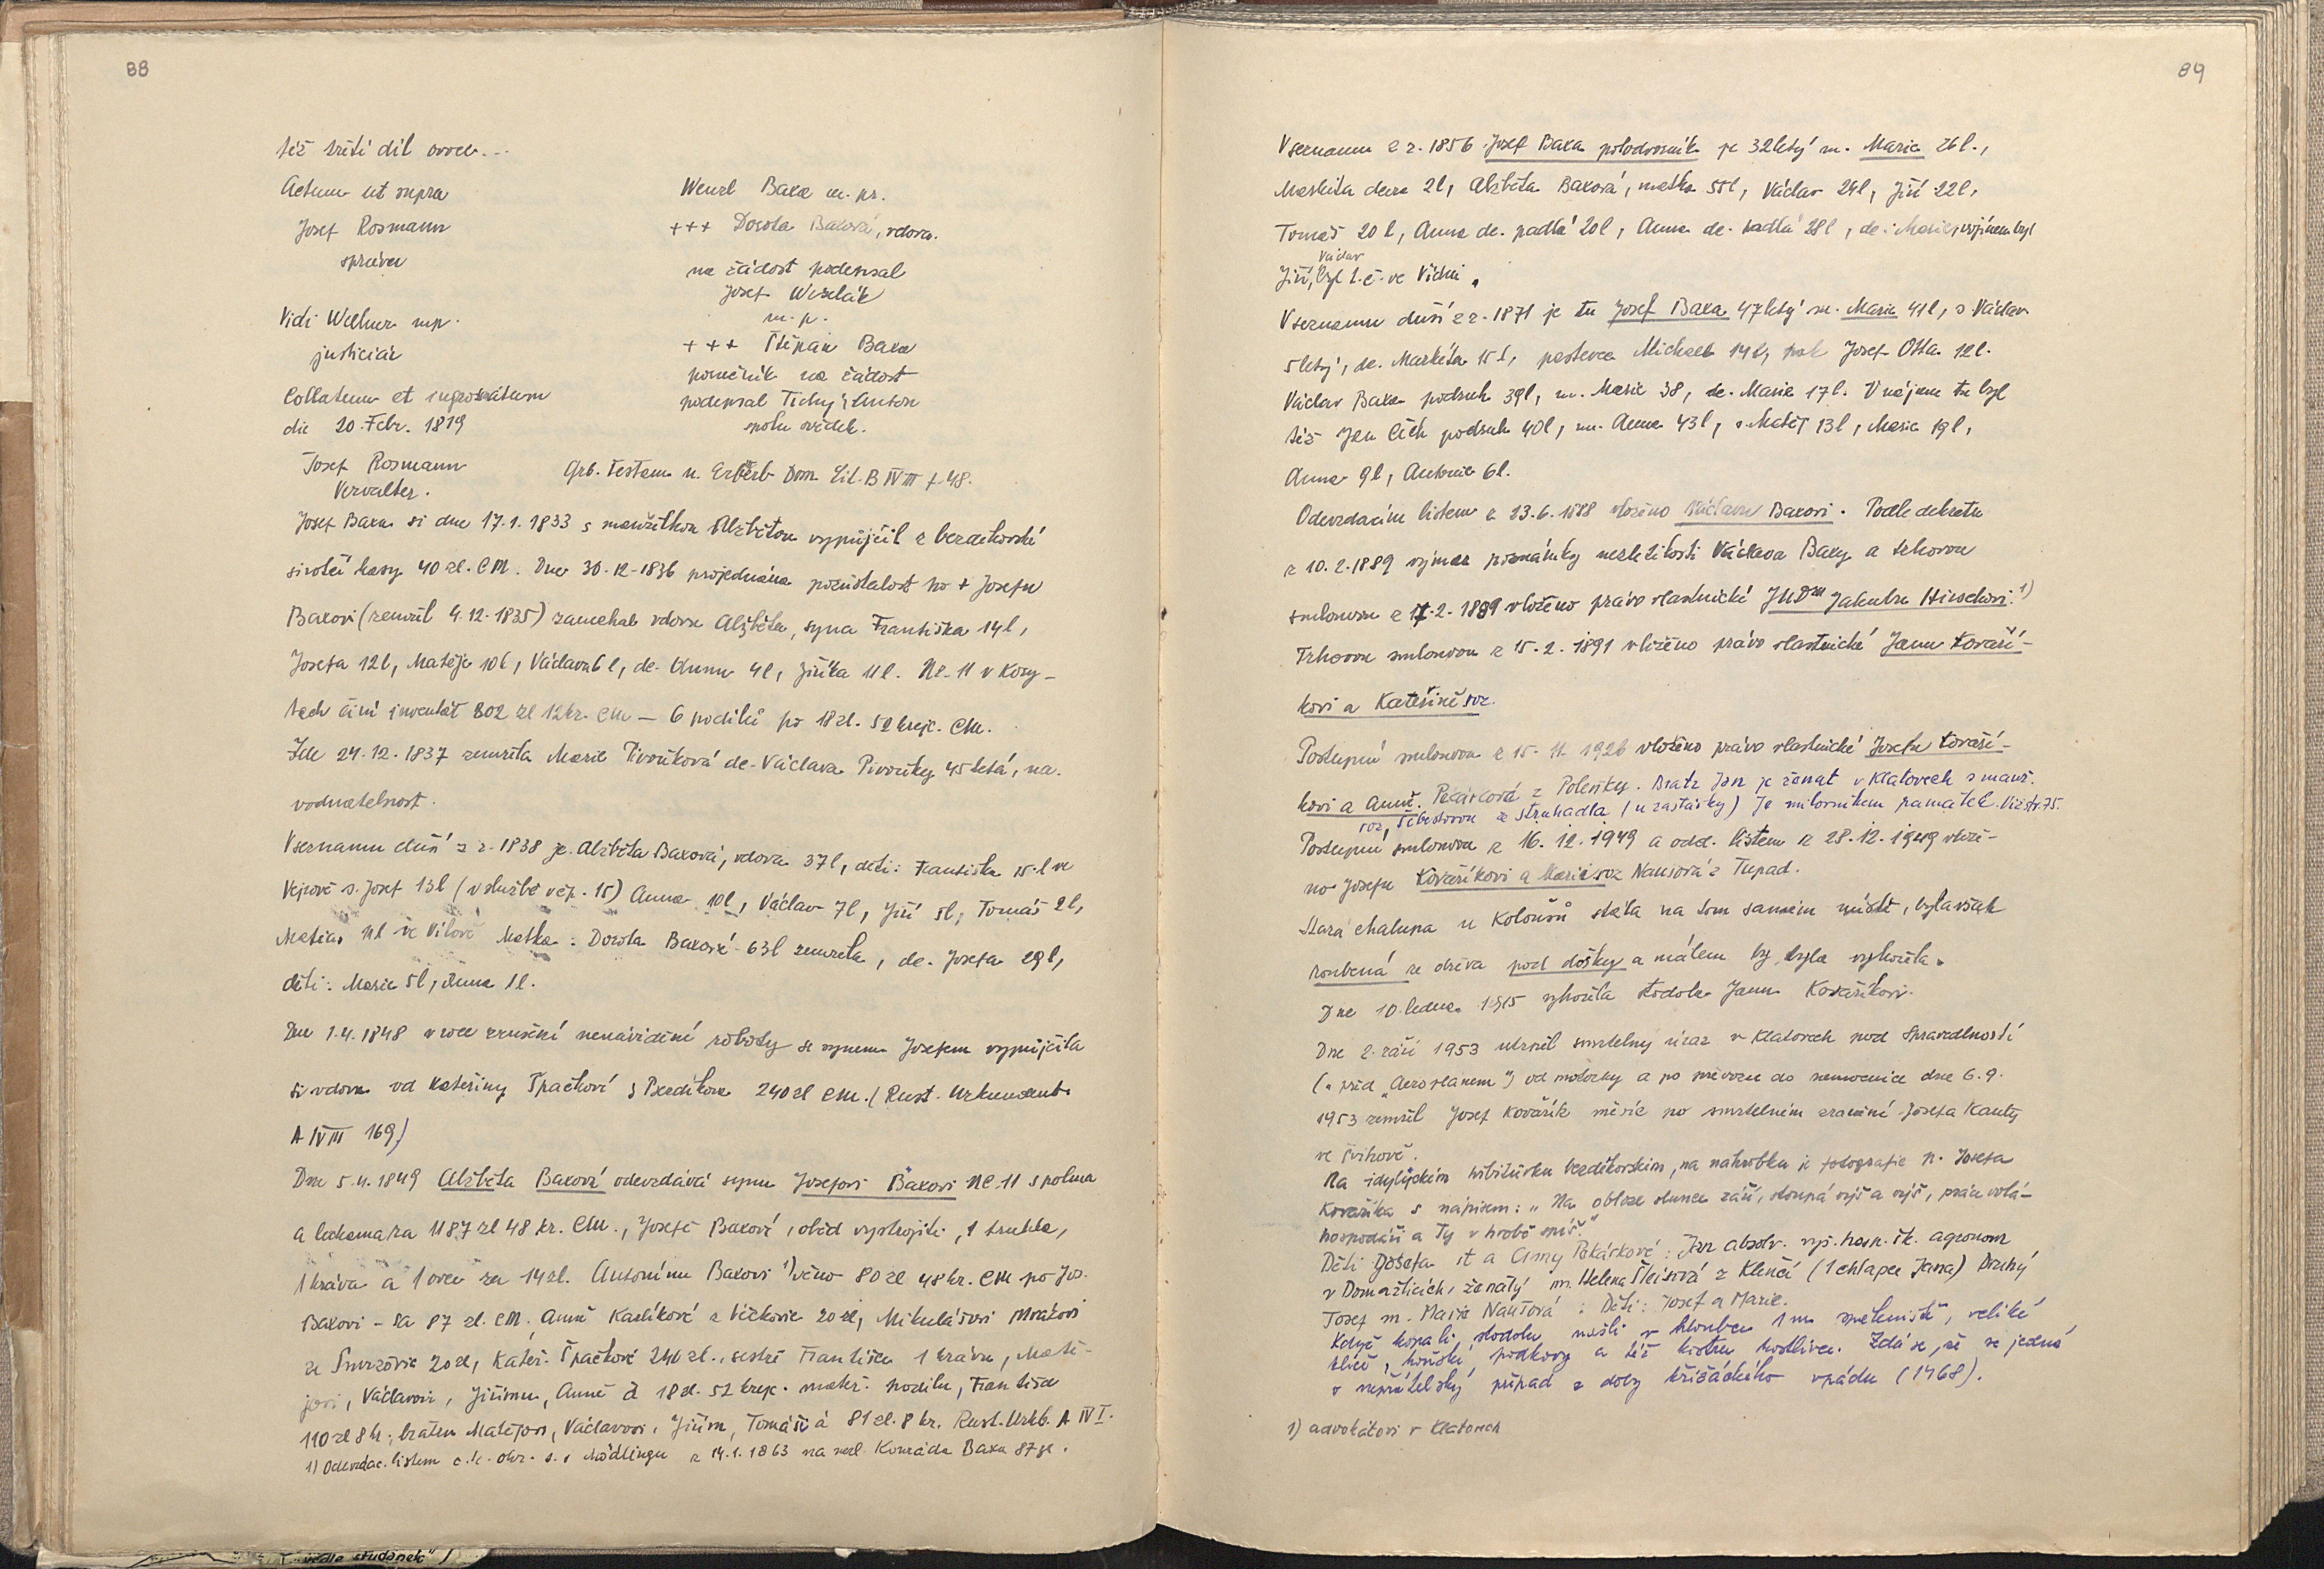 88
též třetí díl ovoce...
Actum ut supra
Josef Rosmann
správce
Vidi Wellner mp.
justiciár
Collatum et ingrossátum
die 20. Febr. 1819
Josef Rosmann
Vervalter.
Wenzl Baxa m. pr.
+++ Dorota Baxová, vdova.
na žádost podepsal
Josef Weselák
m. p.
+++ Štěpán Baxa
poručník na žádost
podepsal Tichý Anton
spolu svědek.
Grb. Testam u. Erbserb Dom. Lit. B IV III f. 48.
Josef Baxa si dne 17.1.1833 s manželkou Alžbětou vypůjčil z bezděkovské
sirotčí kasy 40 zl. CM. Dne 30.12.1836 projednána pozůstalost po + Josefu
Baxovi (zemřel 4.12.1835) zanechal vdovu Alžbětu, syna Františka 14 l,
Josefa 12 l, Matěje 10 l, Václava 6 l, dc. Annu 4 l, Jiříka 11 l. Nc. 11 v Kosy-
tech činí inventář 802 zl 12 kr. CM — 6 podílů po 18 zl. 52 krejc. CM.
Zde 24.12.1837 zemřela Marie Pivoňková dc. Václava Pivoňky 45 letá, na
vodnatelnost.
V seznamu duší z r. 1838 je Alžběta Baxová, vdova 37 l, děti: Františka 15 l ve
Vejrově s. Josef 13 l (v službě v čp. 15) Anna 10 l, Václav 7 l, Jiří 5 l, Tomáš 2 l,
Matias 11 l ve Vítově Matka: Dorota Baxová 63 l zemřela, dc. Josefa 29 l,
děti: Marie 5 l, Anna 1 l.
Dne 1.4.1848 v roce zrušení nenáviděné roboty se synem Josefem vypůjčila
si vdova od Kateřiny Špačkové z Bezděkova 240 zl CM. (Rust. Urkundenb.
A IV III 169)
Dne 5.4.1849 Alžběta Baxová odevzdává synu Josefovi Baxovi NC 11 s polma
a lukama za 1187 zl 48 kr. CM., Josefě Baxové, oběd vystrojiti, 1 truhla,
1 kráva a 1 ovce za 14 zl. Antonínu Baxovi 1) věno 80 zl 48 kr. CM po Jos.
Baxovi - za 87 zl. CM, Anně Karlíkové z Vičkovic 20 zl, Mikulášovi Mráčkovi
ze Smržovic 20 zl, Kateř. Špačkové 240 zl., sestře Františce 1 krávu, Matě-
jovi, Václavovi, Jiřímu, Anně à 18 zl. 52 krejc. mateř. podílu, Františce
110 zl 8 kr, bratru Matějovi, Václavovi, Jiřím, Tomáši à 81 zl. 8 kr. Rust. Urkb. A IV I.
1) Odevzdac. listem c. k. okr. s. v Mödlingu z 14.1.1863 na nezl. Konráda Baxu 87 zl.
89
V seznamu z r. 1856 Josef Baxa polodvorník je 32letý m. Marie 26 l.,
Markéta dcera 2 l, Alžběta Baxová, matka 55 l, Václav 24 l, Jiří 22 l,
Tomáš 20 l, Anna dc. padlá 20 l, Anna dc. padlá 28 l, dc. Marie, vojínem byl
Václav
Jiří, byl t. č. ve Vídni.
V seznamu duší z r. 1871 je tu Josef Baxa 47letý m. Marie 41 l, s. Václav
5letý, dc. Markéta 15 l, pastevec Michael 14 l, pak Josef Otta 12 l.
Václav Baxa podruh 39 l, m. Marie 38, dc. Marie 17 l. V nájmu tu byl
též Jan Čech podruh 40 l, m. Anna 43 l, s. Matěj 13 l, Marie 19 l,
Anna 9 l, Antonie 6 l.
Odevzdacím listem z 23.6.1888 vloženo Václavu Baxovi. Podle dekretu
z 10.2.1889 výmaz poznámky nezletilosti Václava Baxy a trhovou
smlouvou z 17.2.1889 vloženo právo vlastnické JUDru Jakubu Hirschovi. 1)
Trhovou smlouvou z 15.2.1891 vloženo právo vlastnické Janu Kovaří-
kovi a Kateřině roz.
Postupní smlouvou z 15.11.1926 vloženo právo vlastnické Josefu Kovaří-
kovi a Anně. Pekárková z Poleňky. Bratr Jan je ženat v Klatovech s manž.
roz. Šebestovou ze Struhadla (u zastávky) Je milovníkem památek. Viz str. 75.
Postupní smlouvou z 16.12.1949 a odd. listem z 28.12.1949 vlože-
no Josefu Kovaříkovi a Marii roz Naušová z Tupad.
Stará chalupa u Kolouchů stála na tom samém místě, byla však
roubená ze dřeva pod došky a málem by byla vyhořela.
Dne 10. ledna 1915 vyhořela stodola Janu Kovaříkovi.
Dne 2. září 1953 utrpěl smrtelný úraz v Klatovech pod Spravedlností
(před „Aeroplanem") od motorky a po převozu do nemocnice dne 6.9.
1953 zemřel Josef Kovařík měsíc po smrtelném zranění Josefa Kauty
ve Švihově.
Na idylickém hřbitůvku bezděkovském, na náhrobku je fotografie p. Josefa
Kovaříka s nápisem: „Na obloze slunce září, stoupá výš a výš, práce volá-
hospodáři a Ty v hrobě spíš."
Děti Josefa st a Anny Pekárkové: Jan absolv. vyš. hosp. šk. agronom
v Domažlicích, ženatý m. Helena Šleisová z Klenčí (1 chlapec Jana) Druhý
Josef m. Marie Naušová: Děti: Josef a Marie.
Když kopali stodolu našli v hloubce 1 m smetiniště, veliké
klíče, koňské podkovy a též kostru kostlivce. Zdá se, že se jedná
o nepřátelský případ z doby křižáckého vpádu (1468).
1) advokátovi v Klatovech
"vedle studánek")